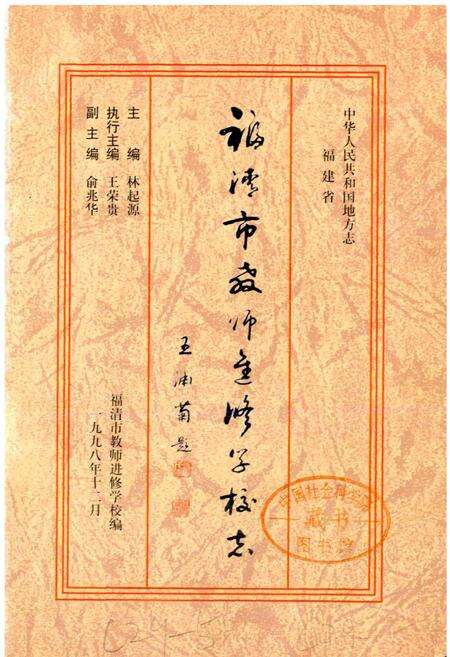 中华人民共和国地方志
福建省
福清市教师进修学校志
王浦菊题
主编 林起源
执行主编 王荣贵
副主编 俞兆华
福清市教师进修学校编
一九九八年十二月
中国社会科学院
藏书
图书馆